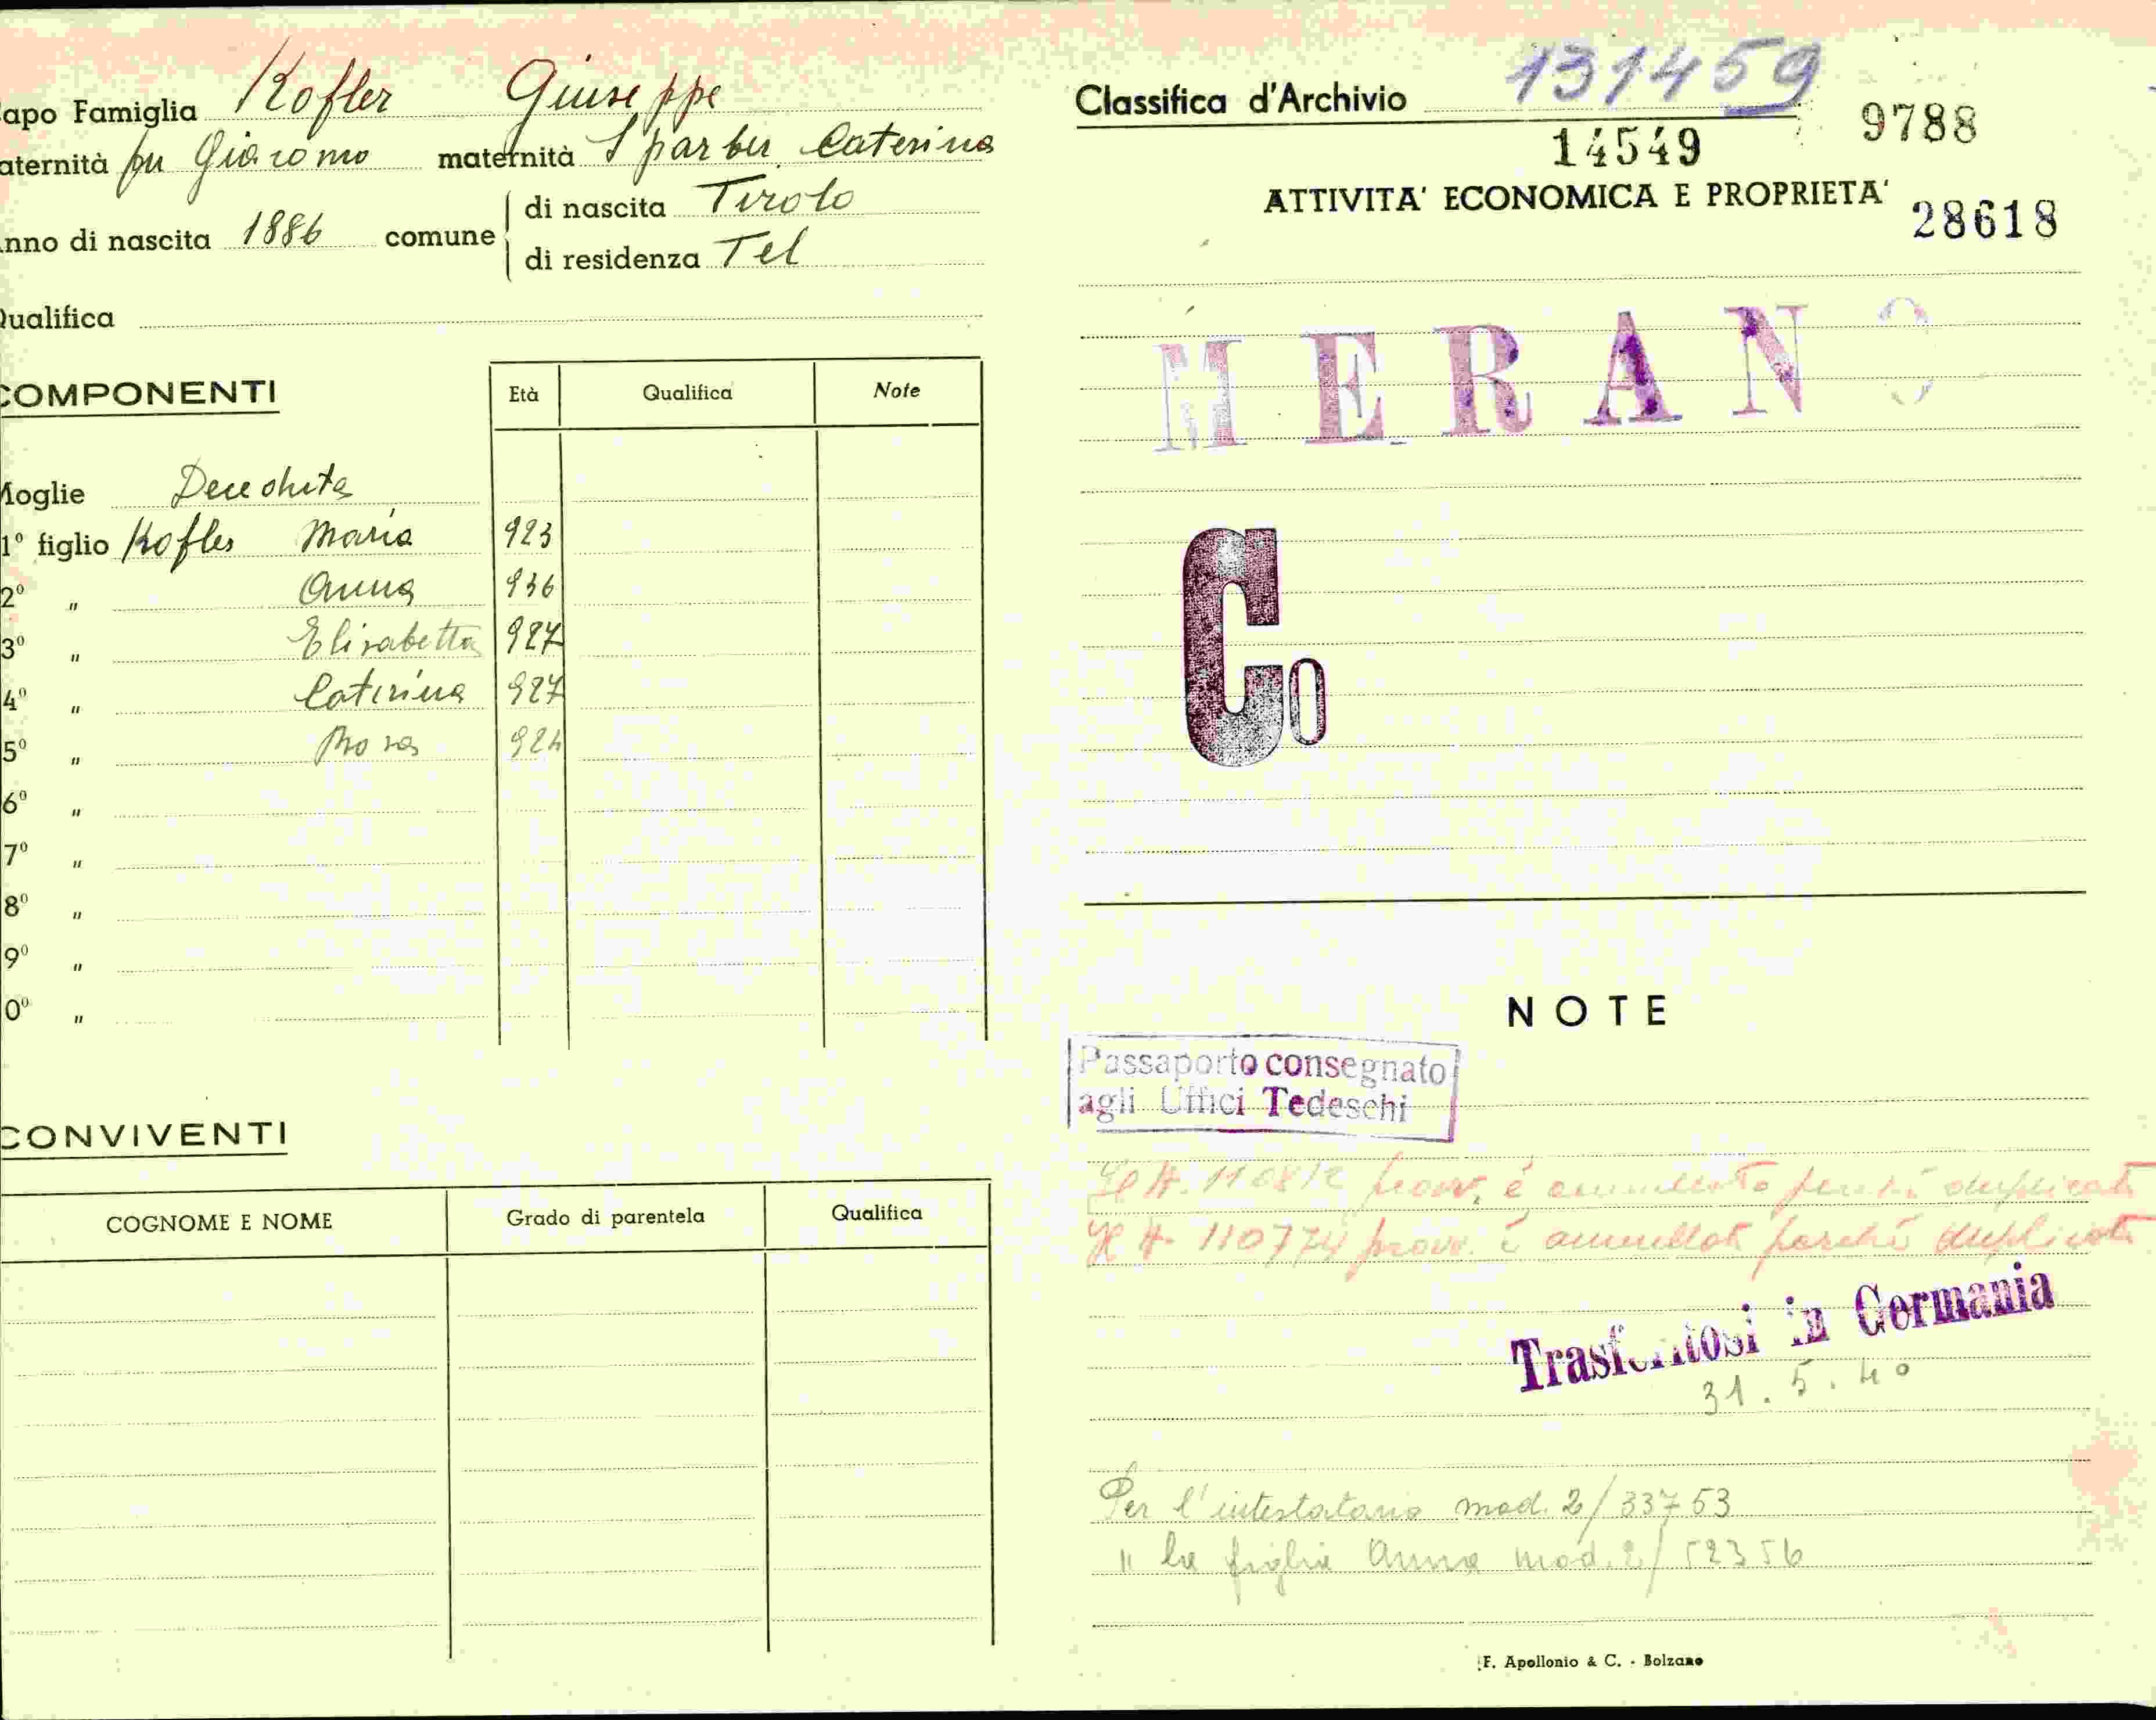 apo Famiglia Kofler Giuseppe
aternità fu Giacomo maternità Sparber Caterina
nno di nascita 1886 comune di nascita Tirolo
di residenza Tel
ualifica
COMPONENTI
Età Qualifica Note
Moglie Deceduta
1º figlio Kofler Maria 923
2º " Anna 936
3º " Elisabetta 927
4º " Caterina 927
5º " Rosa 924
6º "
7º "
8º "
9º "
0º "
CONVIVENTI
COGNOME E NOME Grado di parentela Qualifica
Classifica d'Archivio 131459
14549
9788
ATTIVITA' ECONOMICA E PROPRIETA'
28618
MERANO
Co
NOTE
Passaporto consegnato
agli Uffici Tedeschi
110812 provv. è annullato perchè duplicato
110774 provv. è annullato perchè duplicato
Trasferitosi in Germania
31.5.40
Per l'intestatario mod. 2/33753
" la figlia Anna mod. 2/52356
F. Apollonio & C. - Bolzano